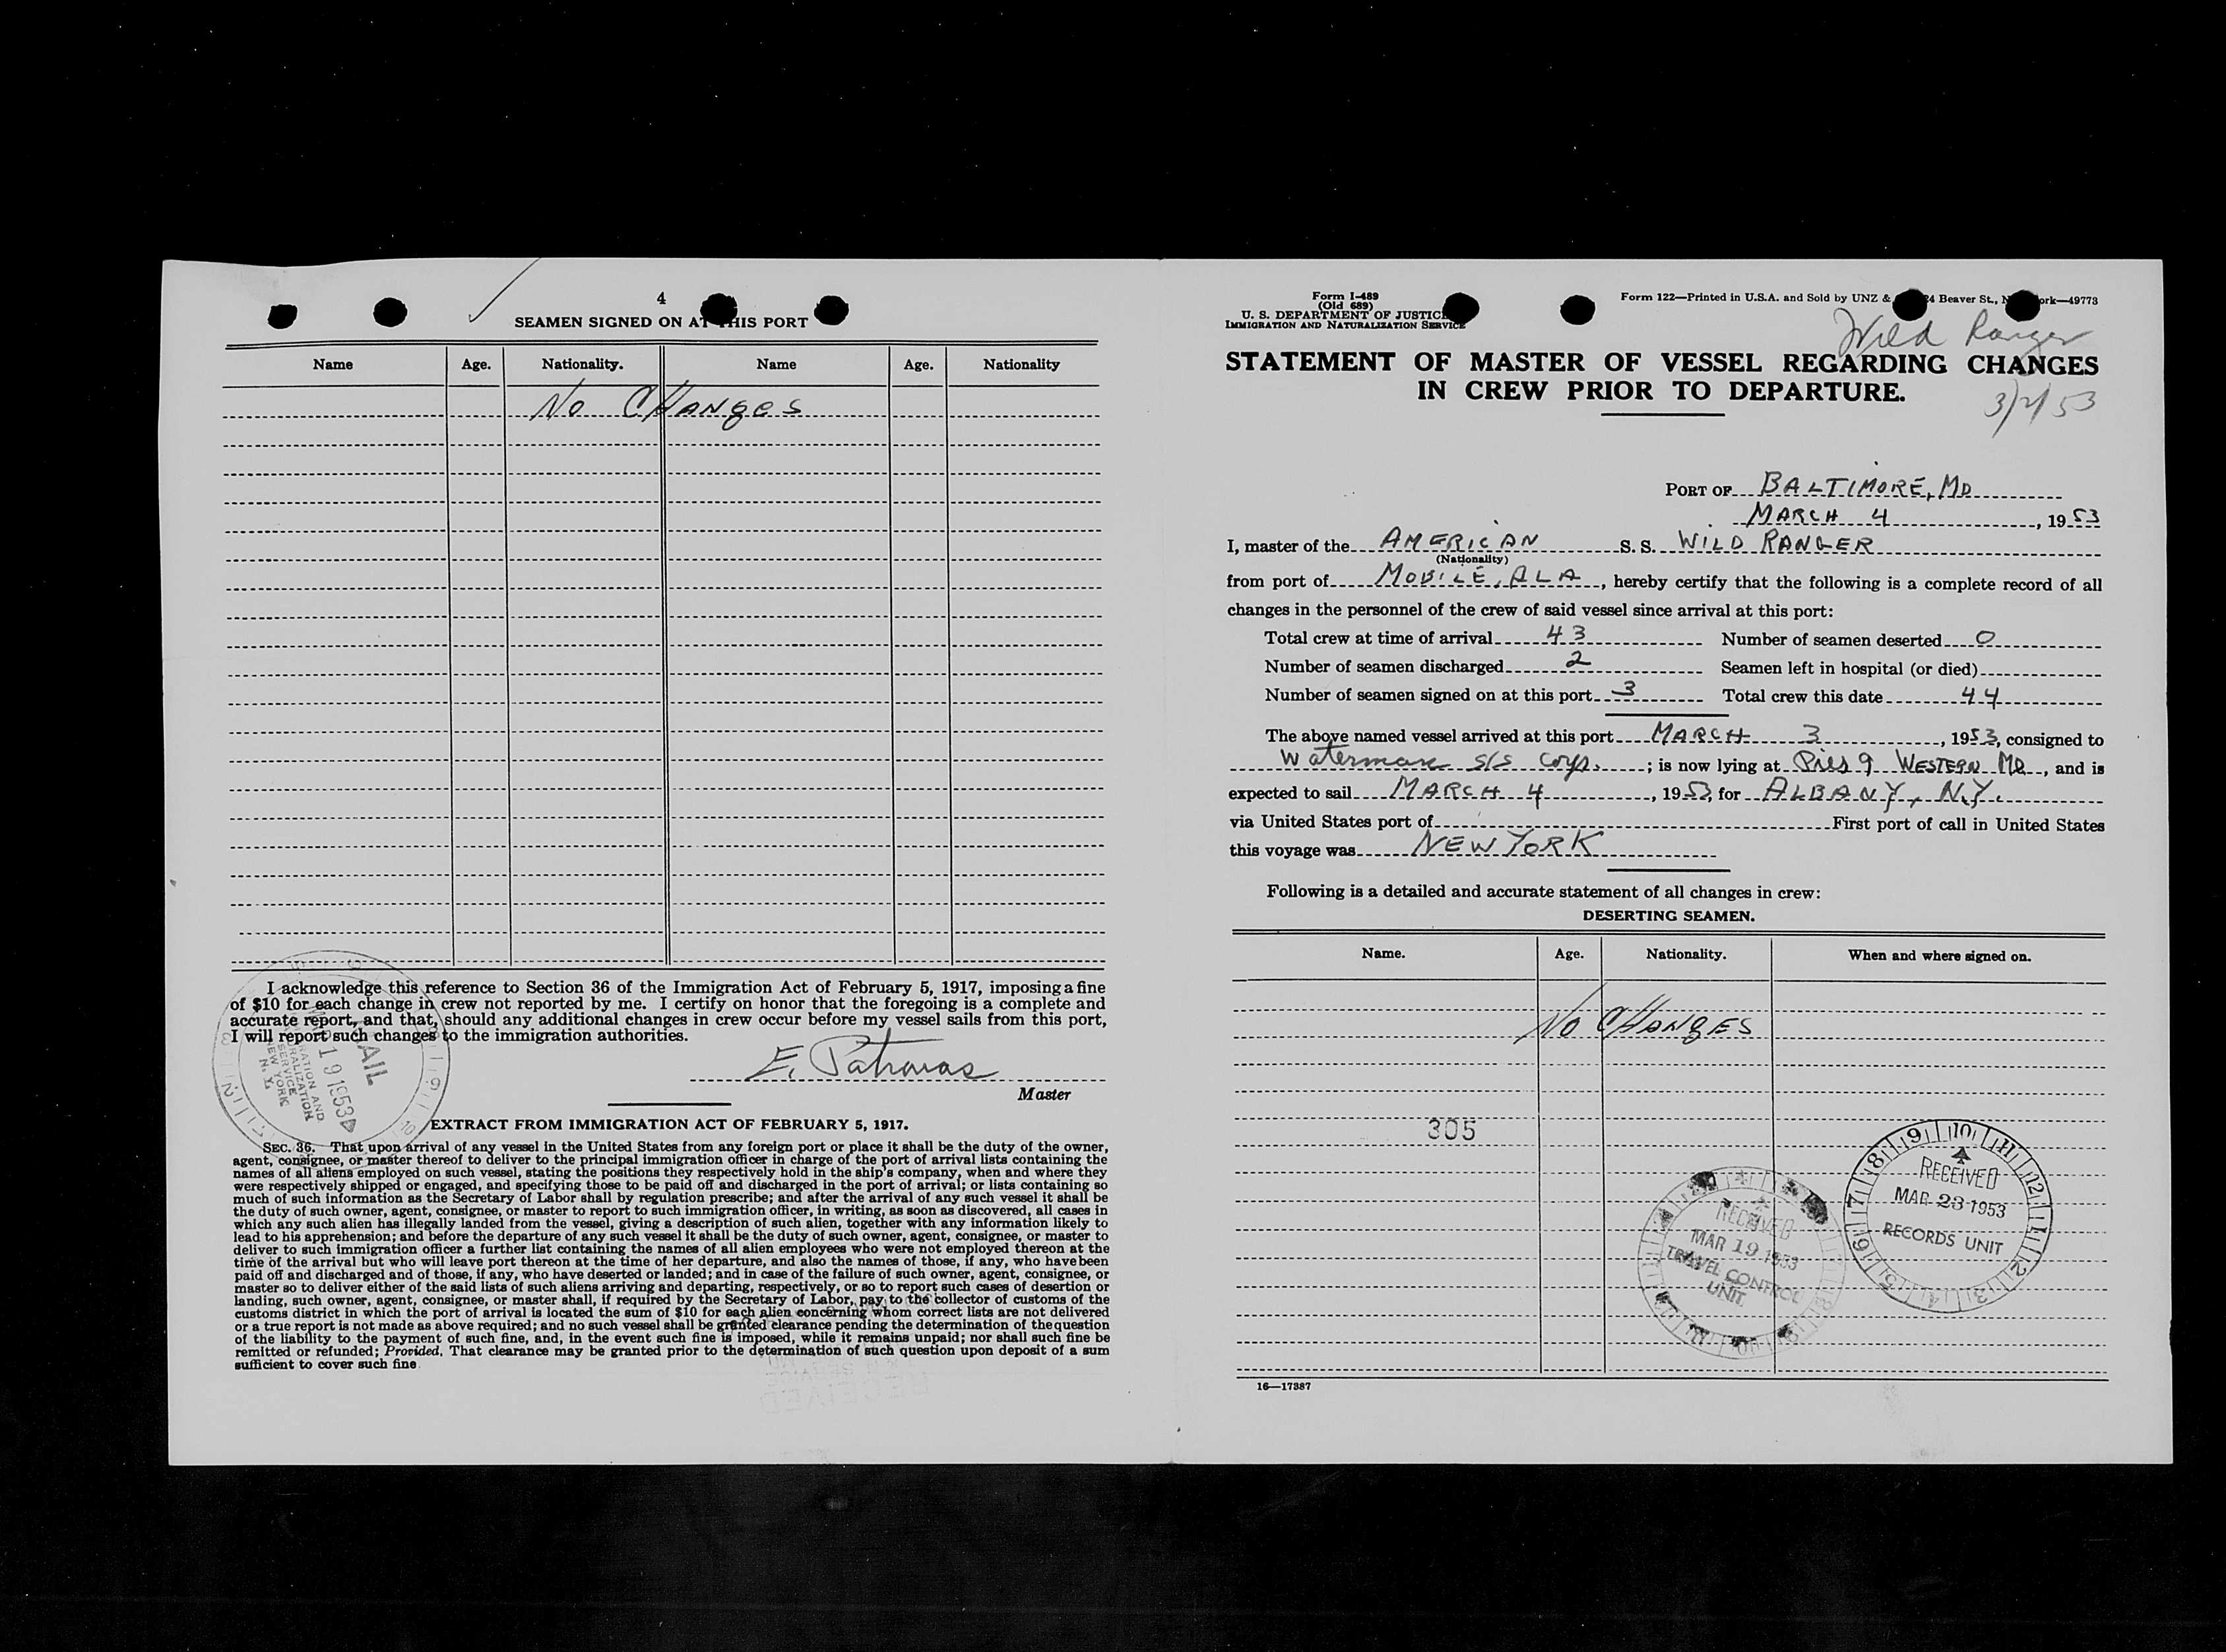 4
SEAMEN SIGNED ON AT THIS PORT
Name Age. Nationality. Name Age. Nationality
No CHANges
I acknowledge this reference to Section 36 of the Immigration Act of February 5, 1917, imposing a fine
of $10 for each change in crew not reported by me. I certify on honor that the foregoing is a complete and
accurate report, and that, should any additional changes in crew occur before my vessel sails from this port,
I will report such changes to the immigration authorities.
MAIL
1 9 1953
SERVICE
NEW YORK
N. Y.
E. Patronas
Master
EXTRACT FROM IMMIGRATION ACT OF FEBRUARY 5, 1917.
SEC. 36. That upon arrival of any vessel in the United States from any foreign port or place it shall be the duty of the owner,
agent, consignee, or master thereof to deliver to the principal immigration officer in charge of the port of arrival lists containing the
names of all aliens employed on such vessel, stating the positions they respectively hold in the ship's company, when and where they
were respectively shipped or engaged, and specifying those to be paid off and discharged in the port of arrival; or lists containing so
much of such information as the Secretary of Labor shall by regulation prescribe; and after the arrival of any such vessel it shall be
the duty of such owner, agent, consignee, or master to report to such immigration officer, in writing, as soon as discovered, all cases in
which any such alien has illegally landed from the vessel, giving a description of such alien, together with any information likely to
lead to his apprehension; and before the departure of any such vessel it shall be the duty of such owner, agent, consignee, or master to
deliver to such immigration officer a further list containing the names of all alien employees who were not employed thereon at the
time of the arrival but who will leave port thereon at the time of her departure, and also the names of those, if any, who have been
paid off and discharged and of those, if any, who have deserted or landed; and in case of the failure of such owner, agent, consignee, or
master so to deliver either of the said lists of such aliens arriving and departing, respectively, or so to report such cases of desertion or
landing, such owner, agent, consignee, or master shall, if required by the Secretary of Labor, pay to the collector of customs of the
customs district in which the port of arrival is located the sum of $10 for each alien concerning whom correct lists are not delivered
or a true report is not made as above required; and no such vessel shall be granted clearance pending the determination of the question
of the liability to the payment of such fine, and, in the event such fine is imposed, while it remains unpaid; nor shall such fine be
remitted or refunded; Provided, That clearance may be granted prior to the determination of such question upon deposit of a sum
sufficient to cover such fine
Form I-489
(Old 689)
U. S. DEPARTMENT OF JUSTICE
IMMIGRATION AND NATURALIZATION SERVICE
Form 122—Printed in U.S.A. and Sold by UNZ & 24 Beaver St., New York—49773
Wild Ranger
STATEMENT OF MASTER OF VESSEL REGARDING CHANGES
IN CREW PRIOR TO DEPARTURE.
3/2/53
PORT OF BALTIMORE, MD
MARCH 4, 1953
I, master of the AMERICAN S. S. WILD RANGER
(Nationality)
from port of MOBILE, ALA, hereby certify that the following is a complete record of all
changes in the personnel of the crew of said vessel since arrival at this port:
Total crew at time of arrival 43 Number of seamen deserted 0
Number of seamen discharged 2 Seamen left in hospital (or died)
Number of seamen signed on at this port 3 Total crew this date 44
The above named vessel arrived at this port MARCH 3, 1953, consigned to
Waterman S/S Corp.; is now lying at Pier 9 WESTERN MD, and is
expected to sail MARCH 4, 1953, for ALBANY, N.Y.
via United States port of First port of call in United States
this voyage was NEW YORK
Following is a detailed and accurate statement of all changes in crew:
DESERTING SEAMEN.
Name. Age. Nationality. When and where signed on.
No CHANgES
305
RECEIVED
MAR 19 1953
TRAVEL CONTROL
UNIT
RECEIVED
MAR 23 1953
RECORDS UNIT
16—17387